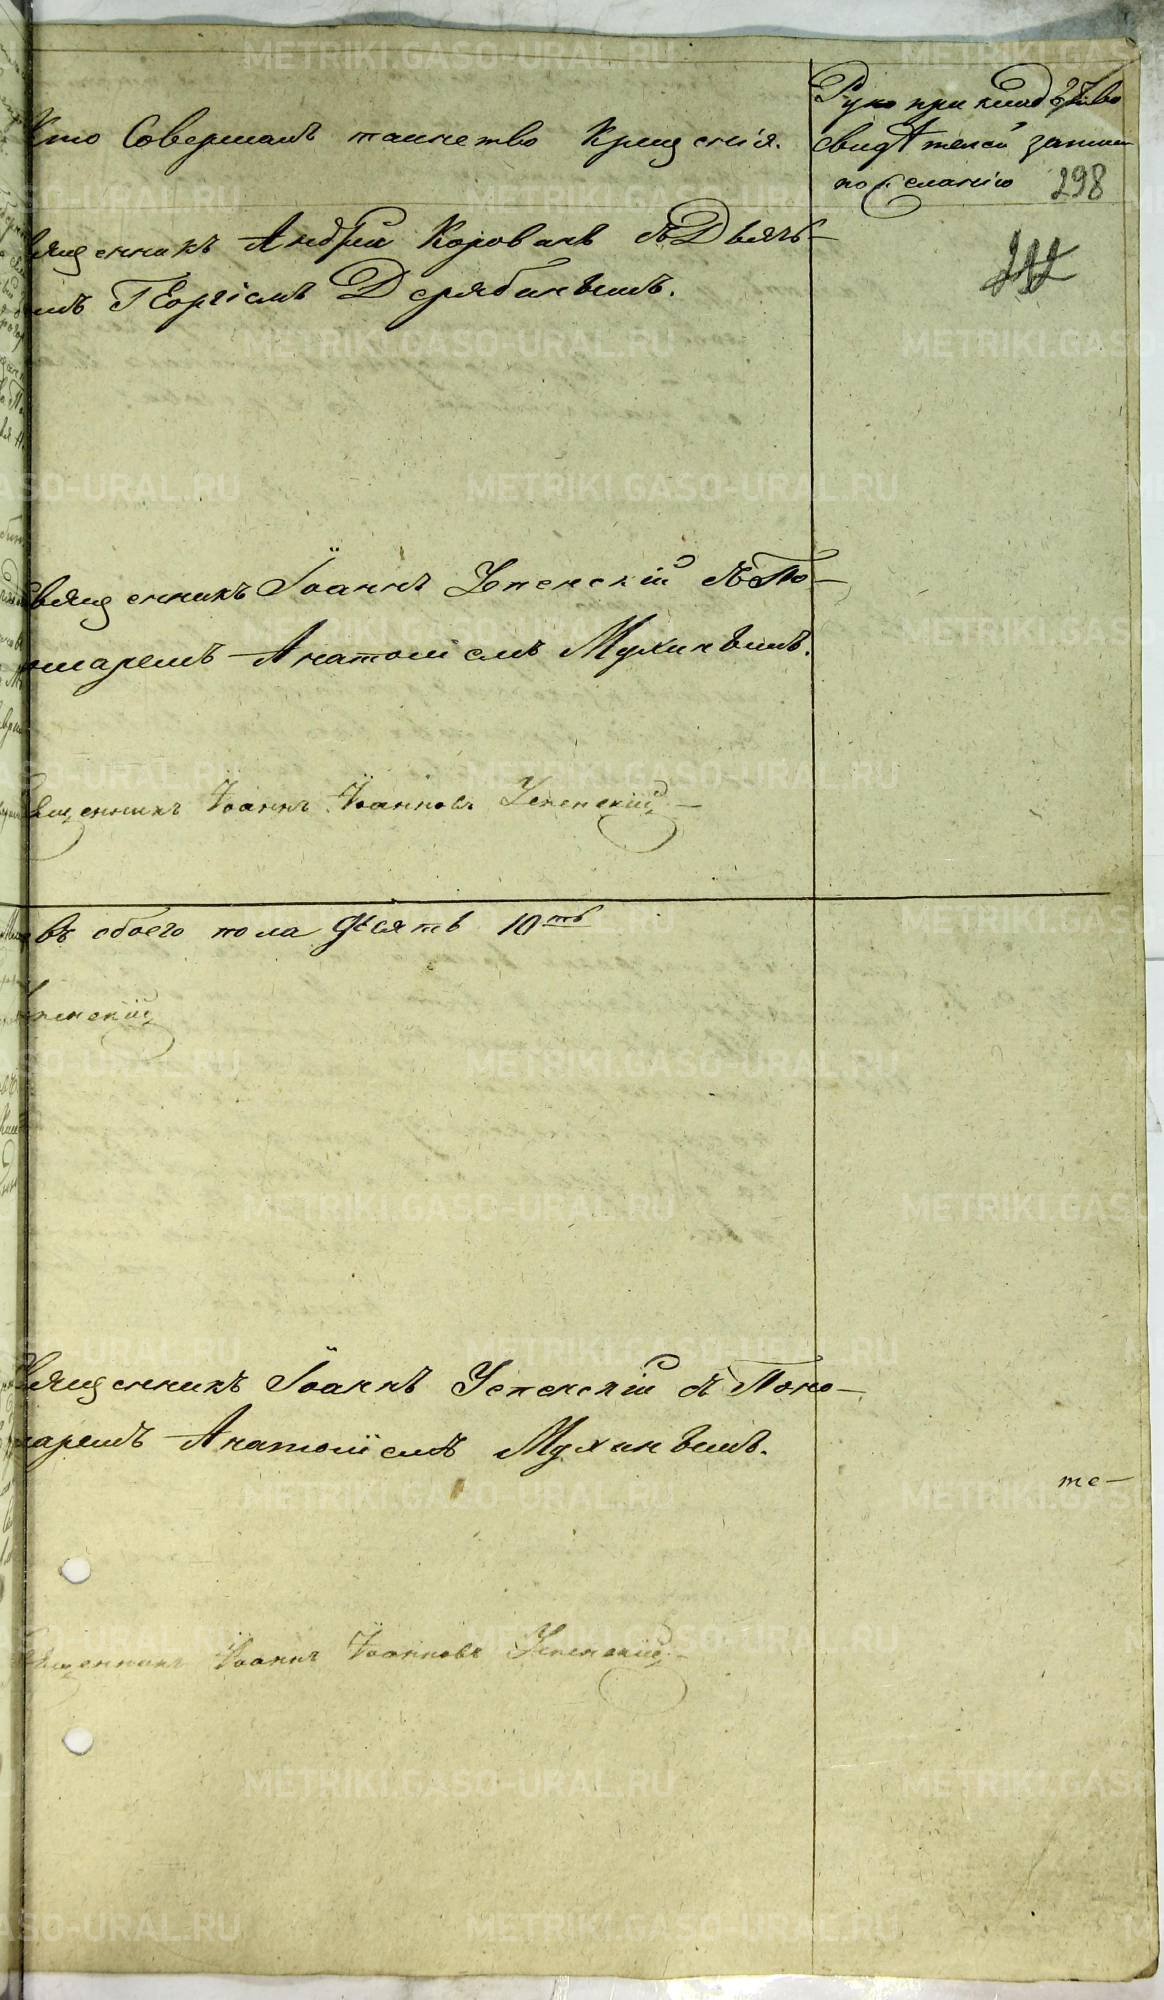 Кто Совершалъ таинство Крещенія.
Рукоприкладство
свидѣтелей записи
по желанію 298
Священникъ Андрей Корованъ съ Дьячь-
мъ Георгіемъ Дерябинымъ.
Священникъ Іоаннъ Успенскій съ По-
номаремъ Анатоліемъ Мухинымъ.
Священникъ Іоаннъ Іоанновъ Успенскій
въ обоего пола десять 10ть
Успенскій
Священникъ Іоаннъ Успенскій съ Поно-
маремъ Анатоліемъ Мухинымъ.
те-
Священникъ Іоаннъ Іоанновъ Успенскій
METRIKI.GASO-URAL.RU